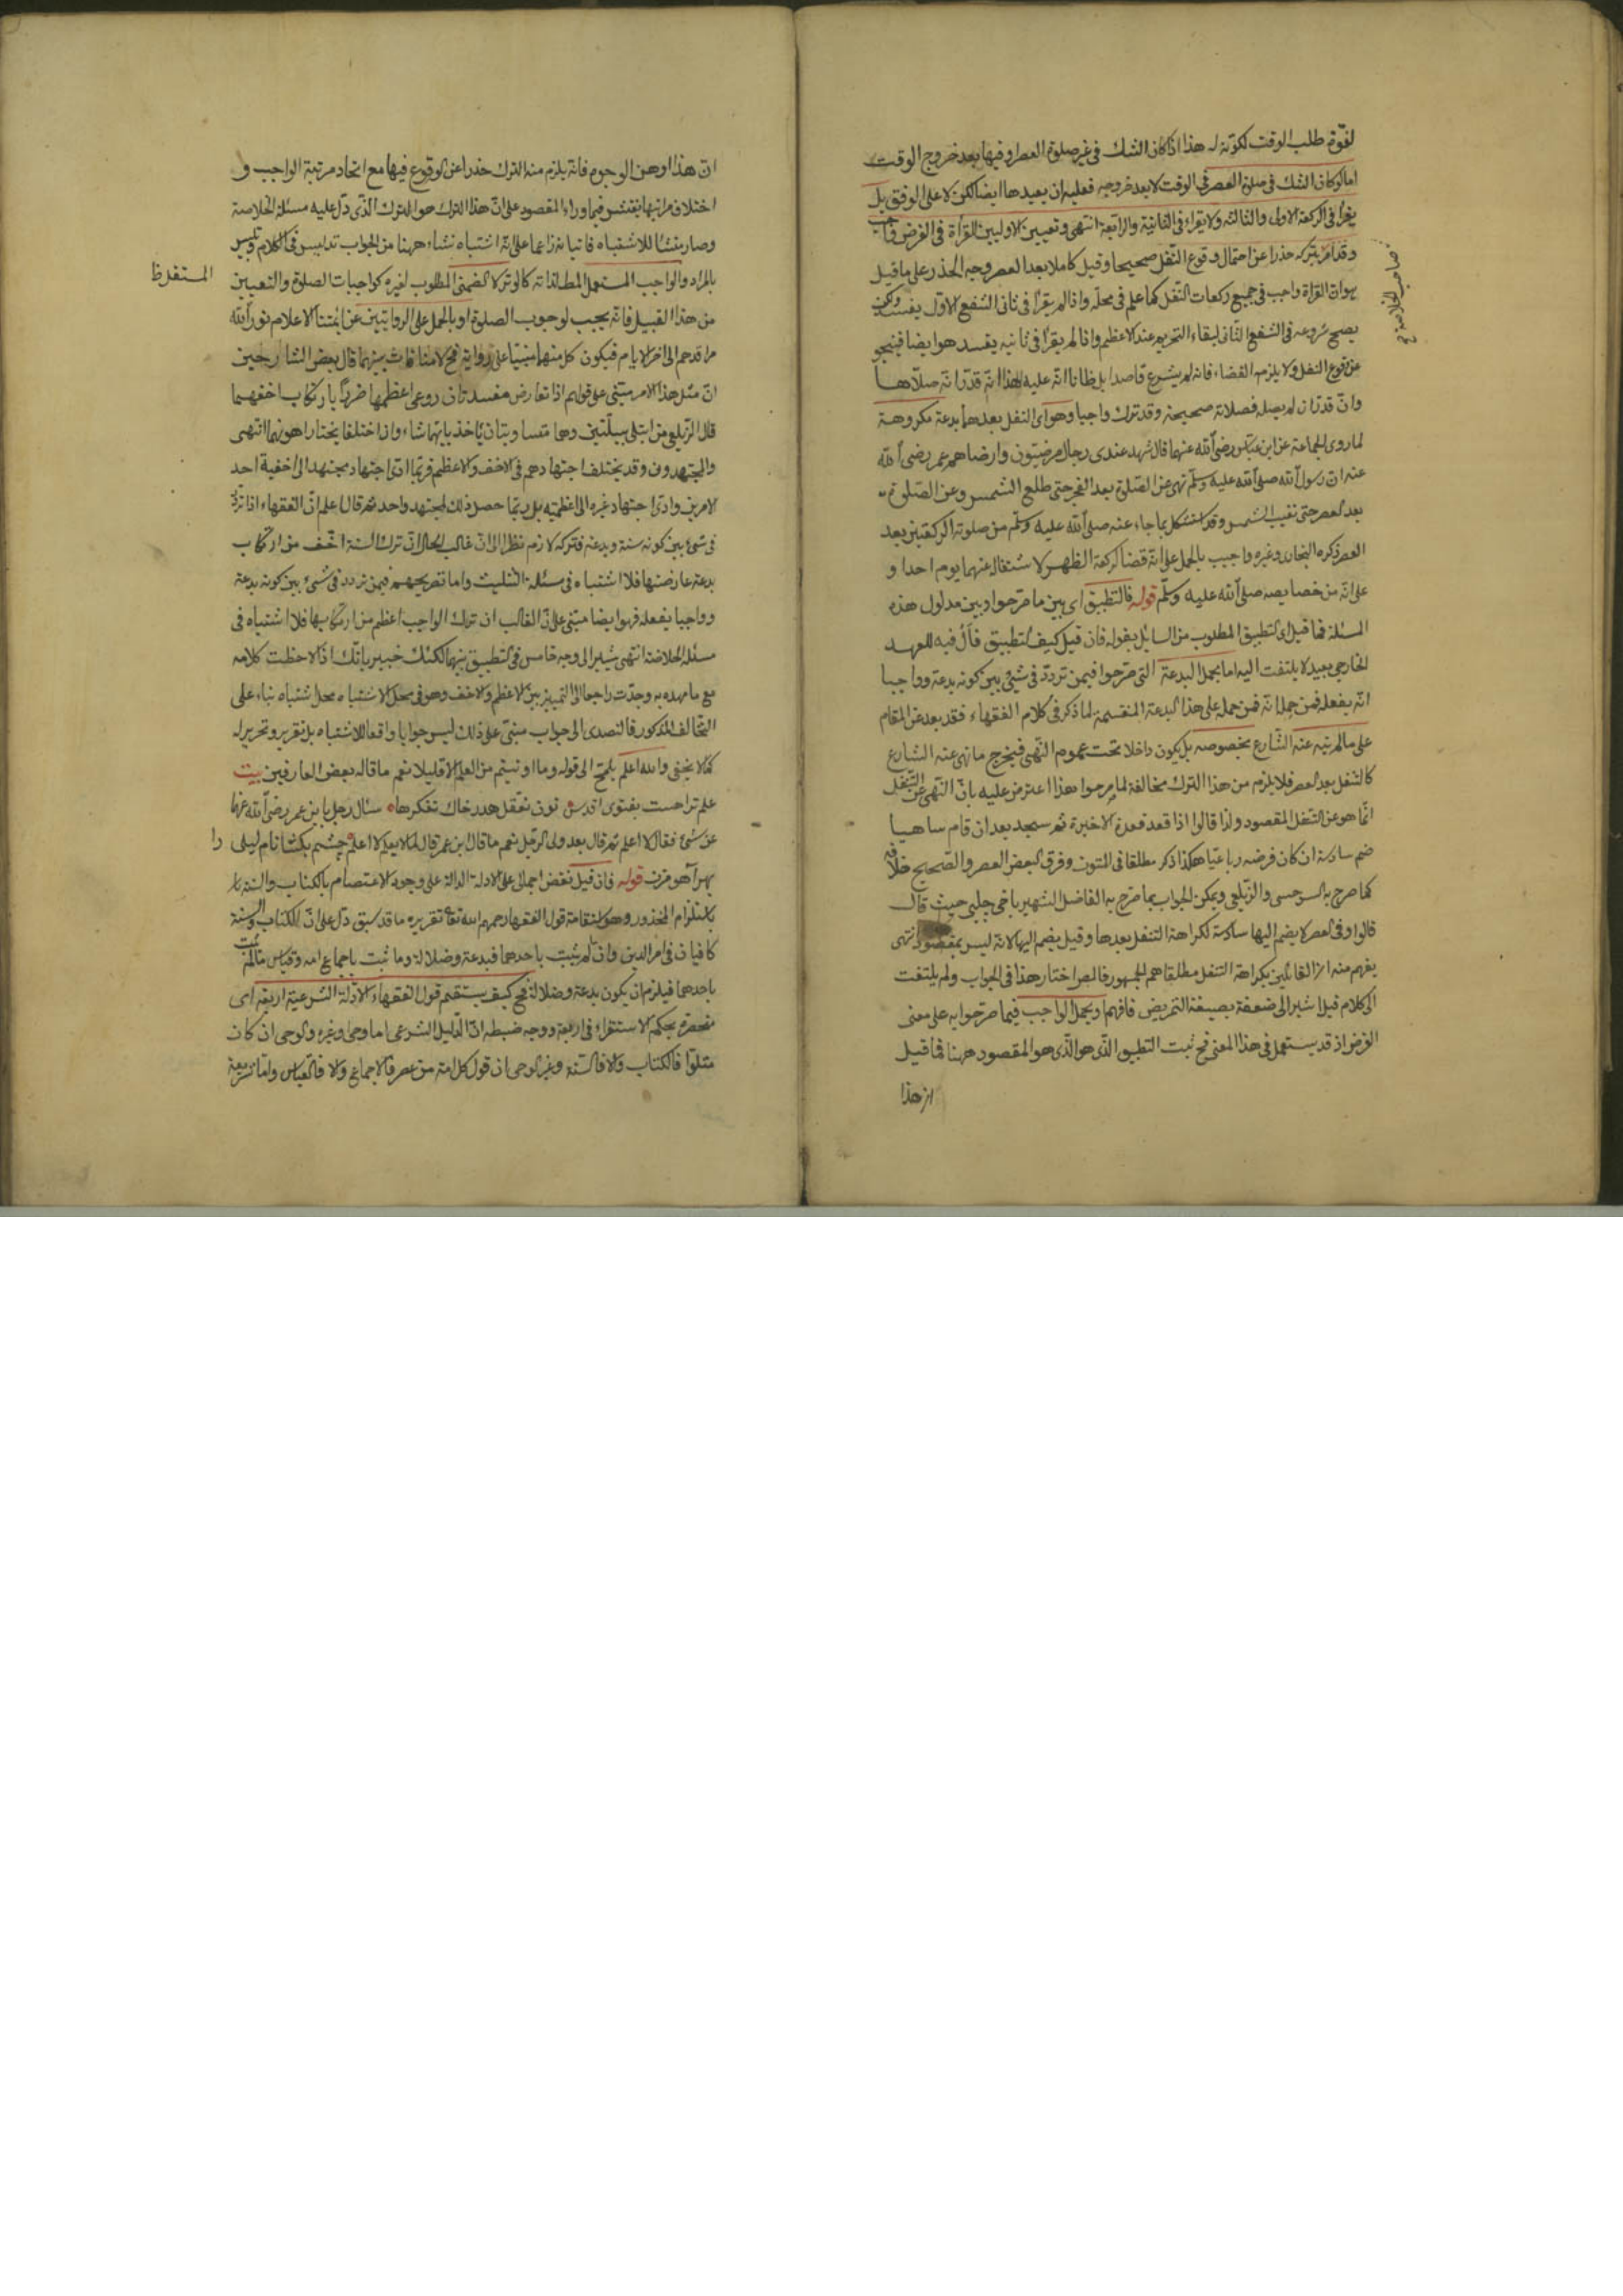 لفوة طلب الوقت لكونه له هذا اذا كان الشك فى غير صلوة العصر او فيها بعد خروج الوقت
اما لو كان الشك فى صلوة العصر فى الوقت لا بعد خروجه فعليه ان يعيدها ايضا لكن لا على الوفق بل
يقرأ فى الركعة الاولى والثالثة ولا يقراء فى الثانية والرابعة انتهى وتعيين الاوليين للقرأة فى الفرض واجب
وقد امر بتركه حذرا عن احتمال وقوع النفل صحيحا وقيل كاملا بعد العصر وجه الحذر على ما قيل
صاحب الخلاصة
هو ان القرأة واجب فى جميع ركعات النفل كما علم فى محله واذا لم يقرأ فى ثانى الشفع الاول يفسد ولكن
يصح شروعه فى الشفع الثانى لبقاء التحريم عند الاعظم واذا لم يقرأ فى ثانيه يفسد هو ايضا فينجو
عن وقوع النفل ولا يلزم القضاء فانه لم يشرع قاصدا بل ظانا انه عليه لهذا انه قدر انه صلاها
وان قدر ان لم يصله فصلاته صحيحة وقد ترك واجبا وهو اى النفل بعدها بدعة مكروهة
لما روى الجماعة عن ابن عباس رضى الله عنهما قال شهد عندى رجال مرضيون وارضاهم عمر رضى الله
عنه ان رسول الله صلى الله عليه وسلم نهى عن الصلوة بعد الفجر حتى طلع الشمس وعن الصلوة
بعد العصر حتى تغيب الشمس وقد استشكل بما جاء عنه صلى الله عليه وسلم من صلوته الركعتين بعد
العصر ذكره البخارى وغيره واجيب بالحمل على انه قضا ركعة الظهر لاشتغاله عنهما يوم احدا و
على انه من خصايصه صلى الله عليه وسلم قوله فالتطبيق اى بين ما صرحوا وبين مدلول هذه
المسئلة فما قيل اى التطبيق المطلوب من السايل بقوله فان قيل كيف التطبيق فأل فيه للعهد
الخارجى بعيد لا يلتفت اليه اما بحمل البدعة التى صرحوا فيمن تردد فى شىء بين كونه بدعة وواجبا
انه يفعله فمن جملا نه فمن حمله على هذا البدعة المنقسمة لما ذكر فى كلام الفقهاء فقد بعد عن المقام
على ما لم ينه عنه الشارع بخصوصه بل يكون داخلا تحت عموم النهى فيخرج ما نهى عنه الشارع
كالتنفل بعد العصر فلا يلزم من هذا الترك مخالفة لما صرحوا هذا اعترض عليه بان النهى عن التنفل
انما هو عن التنفل المقصود ولذا قالوا اذا قعد قعدة الاخيرة ثم سجد بعد ان قام ساهيا
ضم سادسة ان كان فرضه رباعيا هكذا ذكر مطلقا فى المتون وفرق البعض العصر والصحيح خلافه
كما صرح به السرخسى والزيلعى ويمكن الجواب بما صرح به الفاضل الشهير باخى چلبى حيث قال
قالوا وفى العصر لا يضم اليها سادسة لكراهة التنفل بعدها وقيل يضم اليها لانه ليس بمقصود انتهى
يفهم منه ان القائلين بكراهة التنفل مطلقا هم الجمهور فالمص اختار هذا فى الجواب ولم يلتفت
الى كلام قيل اشير الى ضعفه بصيغة التمريض فافهم او بحمل الواجب فيما صرحوا به على معنى
الفرض اذ قد يستعمل فى هذا المعنى فح ثبت التطبيق الذى هو الذى هو المقصود ههنا فما قيل
ان هذا
ان هذا اوهن الوجوه فانه يلزم منه الترك حذرا عن الوقوع فيها مع اتحاد مرتبة الواجب و
اختلاف مراتبها بفتش فيما وراء المقصود على ان هذا الترك هو الترك الذى دل عليه مسئلة الخلاصة
وصار منشأ للاشتباه فاتيانه زاعما على انه اشتباه نشاء ههنا من الجواب تدليس فى الكلام وتلبيس
بالمراد والواجب المستعمل المط لذاته كالوتر لا الضمنى المطلوب لغيره كواجبات الصلوة والتعيين
من هذا القبيل فانه يجب لوجوب الصلوة او بالحمل على الروايتين عن ائمتنا الاعلام نور الله
مراقدهم الى اخر الايام فيكون كل منهما مبنيا على رواية فح لا منافات بينهما قال بعض الشارحين
ان مثل هذا الامر مبتنى على قولهم اذا تعارض مفسدتان روعى اعظمها ضررا بارتكاب اخفهما
قال الزيلعى من ابتلى ببليتين وهما متساويتان يأخذ بايتهما شاء وان اختلفا يختار اهونهما انتهى
والمجتهدون وقد يختلف اجتهادهم فى الاخف والاعظم فربما ادى اجتهاد مجتهد الى اخفية احد
الامرين وادى اجتهاد غيره الى اعظميته بل ربما حصل ذلك لمجتهد واحد ثم قال اعلم ان الفقهاء اذا تردد
فى شىء بين كونه سنة وبدعة فتركه لازم نظرا الى ان غالب الحال ان ترك السنة اخف من ارتكاب
بدعة عارضتها فلا اشتباه فى مسئلة التثليث واما تصريحهم فيمن تردد فى شىء بين كونه بدعة
وواجبا يفعله فهو ايضا مبتنى على ان الغالب ان ترك الواجب اعظم من ارتكابها فلا اشتباه فى
مسئلة الخلاصة انتهى يشير الى وجه خامس فى التطبيق بينهما لكنك خبير بانك اذا لاحظت كلامه
مع ما مهده به وجدت راجعا الى التمييز بين الاعظم والاخف وهو فى محل الاشتباه محل اشتباه بناء على
التخالف المذكور فالتصدى الى جواب مبتنى على ذلك ليس جوابا واقعا للاشتباه بل تقرير وتحرير له
كما لا يخفى والله اعلم يلمح الى قوله وما اوتيتم من العلم الا قليلا نعم ما قاله بعض العارفين بيت
سئال رجل يا بن عمر رضى الله عنهما
عن شىء فقال لا اعلم ثم قال بعد ولى الرجل نعم ما قال ابن عمر قال لما لا يعلم لا اعلم چشم بكشا نام ليلى
را
قوله فان قيل نقض اجمالى على الادلة الدالة على وجوه الاعتصام بالكتاب والسنة
باستلزام المحذور وهو استقامة قول الفقهاء رحمهم الله تعا تقريره ما قد سبق دل على ان الكتاب والسنة
كافيان فى امر الدين وان لم يثبت باحدهما فبدعة وضلالة وما ثبت باجماع امة وقياس مما لم يثبت
باحدهما فيلزم ان يكون بدعة وضلالة فح كيف يستقيم قول الفقهاء الادلة الشرعية اربعة اى
منحصرة بحكم الاستقراء فى اربعة ووجه ضبطه ان الدليل الشرعى اما وحى وغيره والوحى ان كان
متلوا فالكتاب والا فالسنة وغير الوحى ان قول كل امة من عصر فالاجماع والا فالقياس واما شريعة